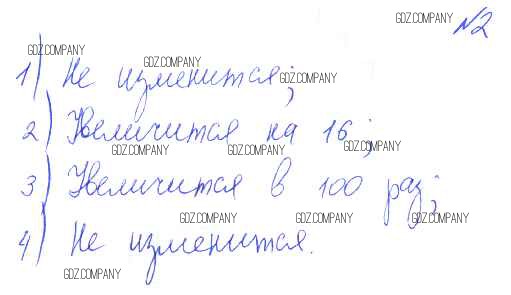 GDZ.COMPANY №2
GDZ.COMPANY GDZ.COMPANY
1) Не изменится;
GDZ.COMPANY
2) Увеличится на 16;
GDZ.COMPANY GDZ.COMPANY GDZ.COMPANY
3) Увеличится в 100 раз;
GDZ.COMPANY GDZ.COMPANY GDZ.COMPANY
4) Не изменится.
GDZ.COMPANY